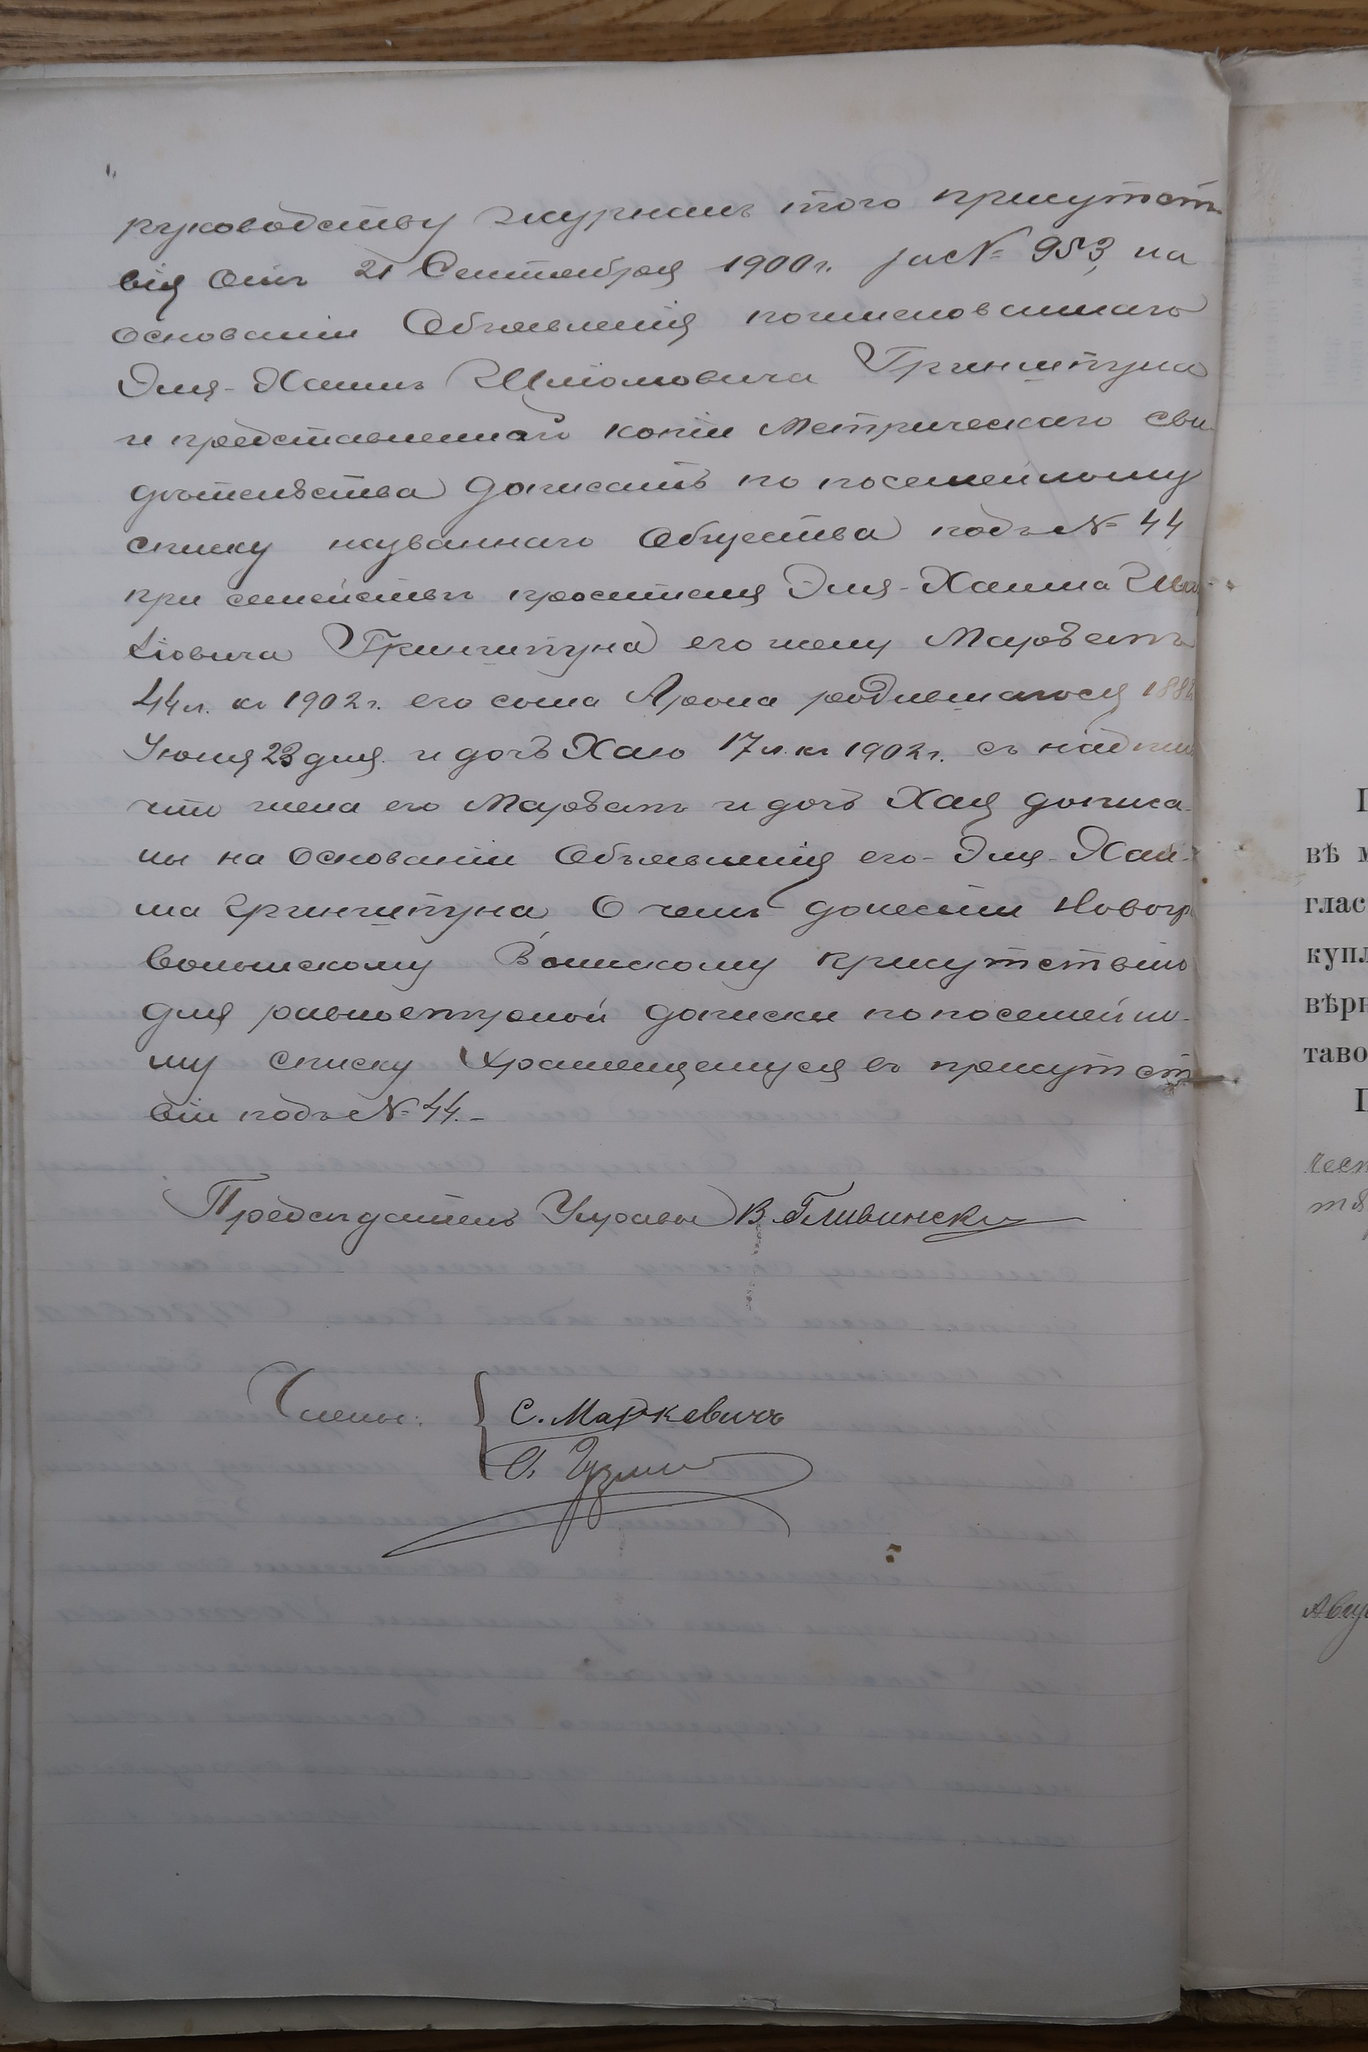 руководству журналъ того присутст-
вія отъ 21 Сентября 1900 г. за № 953, на
основаніи Объявленія поименованнаго
Эля-Хаимъ Шліомовича Гринштуна
и представленной копіи Метрическаго сви-
дѣтельства дописать по посемейному
списку названнаго Общества подъ № 44
при семействѣ просителя Эля-Хаима
Гринштуна его жену Марьемъ
44 л. къ 1902 г. его сына Арона родившагося
Іюня 23 дня и дочь Хаю 17 л. къ 1902 г. съ
что жена его Марьемъ и дочь Хая дописа-
ны на основаніи Объявленія его Эля-Хаи-
ма Гринштуна О чемъ донести Новогр
волынскому Воинскому присутствію
для равномѣрной дописки по посемейно-
му списку хранящемуся въ присутст
віи подъ № 44.-
Предсѣдатель Управы В. Гливинскі
Члены: С. Маркевичъ
вѣ
глас
купл
вѣрн
таво
Авгу